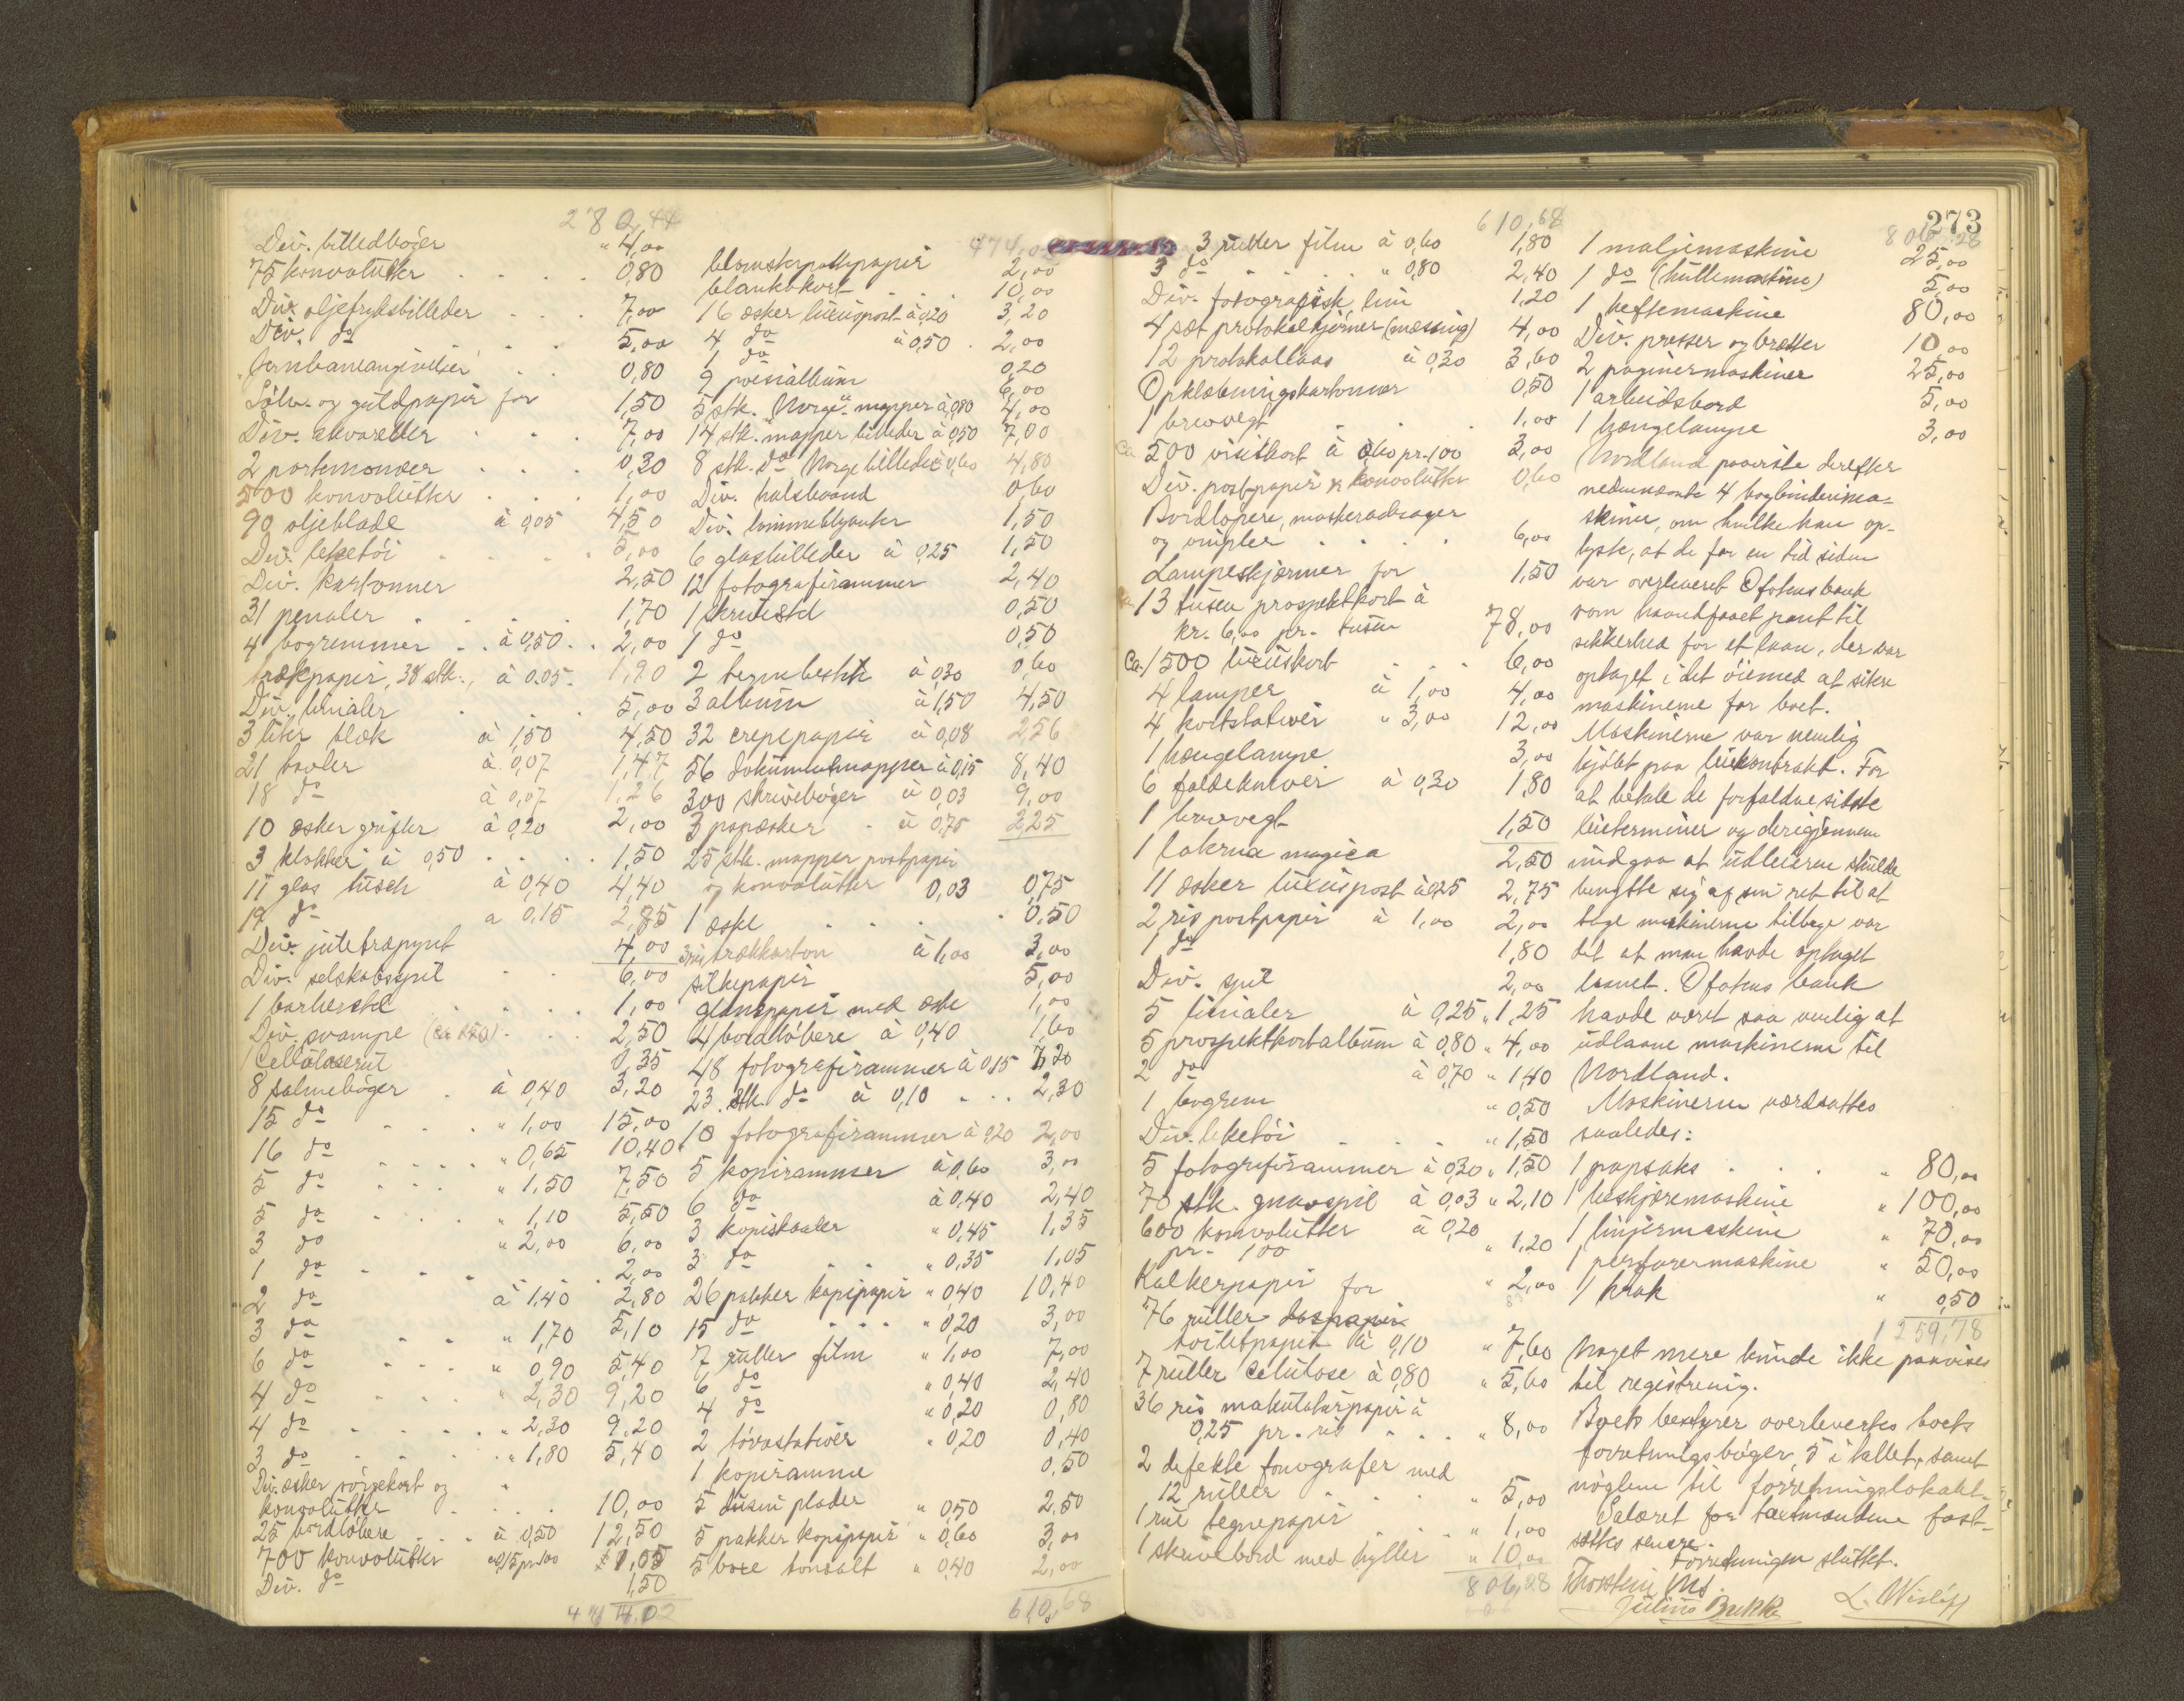 280,44
Div. billedbøger " 4,00
75 konvolutter 0,80
Div. oljetryksbilleder 7,00
Div. do 5,00
Jernbaneangivelser 0,80
Sølv- og guldpapir for 1,50
Div. akvareller 7,00
2 portemonæer 0,30
500 konvolutter 1,00
90 oljeblade à 0,05 4,50
Div. leketøi 5,00
Div. kartonner 2,50
31 penaler 1,70
4 bogremmer à 0,50 2,00
trækpapir, 38 stk., à 0.05. 1,90
Div. linialer 5,00
3 liter blæk à 1,50 4,50
21 tavler à 0,07 1,47
18 do à 0,07 1,26
10 æsker grifler à 0,20 2,00
3 klokker à 0,50 1,50
11 glas tusch à 0,40 4,40
19 do a 0,15 2,85
Div. juletræpynt 4,00
Div. selskabsspil 6,00
1 barberstel 1,00
Div. svampe 2,50
1 Celluloserul 0,35
8 salmebøger à 0,40 3,20
15 do " 1,00 15,00
16 do " 0,65 10,40
5 do " 1,50 7,50
5 do " 1,10 5,50
3 do " 2,00 6,00
1 do 2,00
2 do à 1,40 2,80
3 do " 1,70 5,10
6 do " 0,90 5,40
4 do " 2,30 9,20
4 do " 2,30 9,20
3 do " 1,80 5,40
Div. æsker sørgekort og
konvolutter 10,00
25 bordløbere à 0,50 12,50
700 konvolutter a 0,15 pr 100 1,05
Div. do 1,50
474,02
blomsterpottepapir 2,00
blankokort 10,00
16 æsker luxuspost à 0,20 3,20
4 do à 0,50 2,00
1 do 0,20
9 poesialbum 6,00
5 stk. "Norge" mapper à 0,80 4,00
14 stk. mapper billeder à 0,50 7,00
8 stk. do Norge billeder à 0,60 4,80
Div. halsbaand 0,60
Div. lommeblyanter 1,50
6 glasbilleder à 0,25 1,50
12 fotografirammer 2,40
1 skrivestel 0,50
1 do 0,50
2 tegnebestik à 0,30 0,60
3 album à 1,50 4,50
32 crepepapir à 0,08 2,56
56 dokumentmapper à 0,15 8,40
300 skrivebøger à 0,03 9,00
3 papæsker à 0,75 2,25
25 stk. mapper postpapir
og konvolutter 0,03 0,75
1 æske 0,50
3 rul trækkarton à 1,00 3,00
silkepapir 5,00
glanspapir med æske 1,00
4 bordløbere à 0,40 1,60
48 fotografirammer à 0,15 7,20
23 stk. do à 0,10 2,30
10 fotografirammer à 0,20 2,00
5 kopirammer à 0,60 3,00
6 do à 0,40 2,40
3 kopiskaaler " 0,45 1,35
3 do " 0,35 1,05
26 pakker kopipapir " 0,40 10,40
15 do " 0,20 3,00
7 ruller film " 1,00 7,00
6 do " 0,40 2,40
4 do " 0,20 0,80
2 tørrestativer " 0,20 0,40
1 kopiramme 0,50
5 dusin plader " 0,50 2,50
5 pakker kopipapir " 0,60 3,00
5 boxe tonsalt " 0,40 2,00
610,68
610,68
3 ruller film à 0,60 1,80
3 do " 0,80 2,40
Div. fotografisk lim 1,20
4 sæt protokolhjørner (messing) 4,00
12 protokollaas à 0,30 3,60
Opklæbningskartonner 0,50
1 brevvegt 1,00
ca 500 visitkort à 0,60 pr. 100 3,00
Div. postpapir & konvolutter 0,60
Bordløpere, maskeradesager
og vimpler 6,00
Lampeskjærmer for 1,50
13 tusen prospektkort à
kr. 6,00 pr. tusen 78,00
Ca. 1500 luxuskort 6,00
4 lamper à 1,00 4,00
4 kortstativer " 3,00 12,00
1 hængelampe 3,00
6 foldekniver à 0,30 1,80
1 brevvegt 1,50
1 laterna magica 2,50
11 æsker luxuspost à 0,25 2,75
2 ris postpapir à 1,00 2,00
1 do 1,80
Div. spil 2,00
5 linialer à 0,25 " 1,25
5 prospektkortalbum à 0,80 " 4,00
2 do à 0,70 " 1,40
1 bogrem " 0,50
Div. leketøi " 1,50
5 fotografirammer à 0,30 " 1,50
70 stk. gnavspil à 0,03 " 2,10
600 konvolutter à 0,20
pr. 100 " 1,20
Kalkerpapir for " 2,00
76 ruller
toiletpapir à 0,10 " 7,60
7 ruller celulose à 0,80 " 5,60
36 ris makulaturpapir à
0,25 pr. ris " 8,00
2 defekte fonografer med
12 ruller " 5,00
1 rul tegnepapir " 1,00
1 skrivebord med hyller " 10,00
806,28
273
806,28
1 maljemaskine 25,00
1 do (hullemaskine) 5,00
1 heftemaskine 80,00
Div. presser og brætter 10,00
2 paginermaskiner 25,00
1 arbeidsbord 5,00
1 hængelampe 3,00
Nordland paaviste derefter
nedennævnte 4 bogbinderima-
skiner, om hvilke han op-
lyste, at de for en tid siden
var overleveret Ofotens bank
som haandfaaet pant til
sikkerhed for et laan, der var
optaget i det øiemed at sikre
maskinerne for boet.
Maskinerne var nemlig
kjøbt paa leiekontrakt. For
at betale de forfaldne, sidste
leieterminer og derigjennem
undgaa at udleieren skulde
benytte sig af sin ret til at
tage maskinerne tilbage var
det at man havde optaget
laanet. Ofotens bank
havde været saa venlig at
udlaane maskinerne til
Nordland.
Maskinerne værdsattes
saaledes:
1 papsaks " 80,00
1 beskjæremaskine " 100,00
1 linjermaskine " 70,00
1 perforermaskine " 50,00
1 krak " 0,50
1259,78
Noget mere kunde ikke paavises
til registrering.
Boets bestyrer overlevertes boets
forretningsbøger, 5 i tallet, samt
nøglene til forretningslokalet.
Salæret for taxtmændene fast-
sættes senere.
Forretningen sluttet.
Thorstein
Julius Bakke L. Wisløff